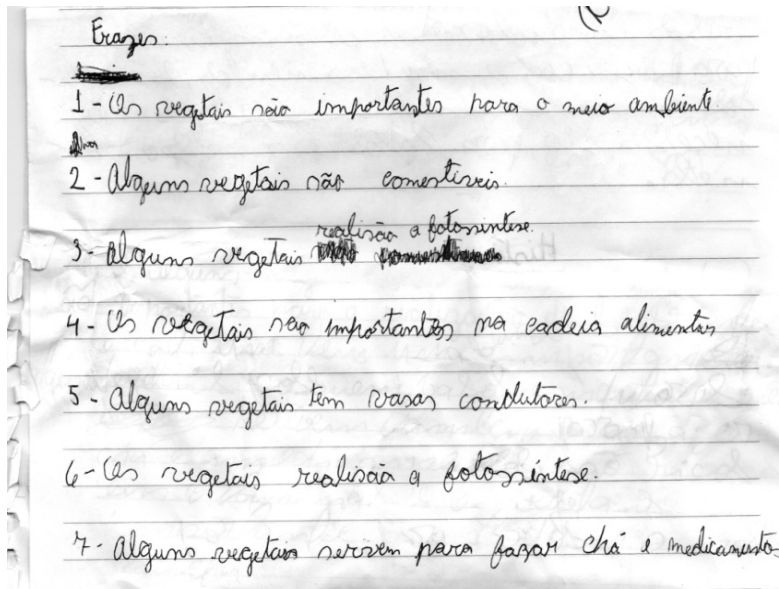 Frazes:
1 - Os vegetais são importantes para o meio ambiente.
2 - Alguns vegetais são comestiveis.
realisão a fotossintese.
3 - Alguns vegetais
4 - Os vegetais são importantes na cadeia alimentar
5 - Alguns vegetais tem vasos condutores.
6 - Os vegetais realisão a fotossíntese.
7 - Alguns vegetais servem para fazar chá e medicamentos